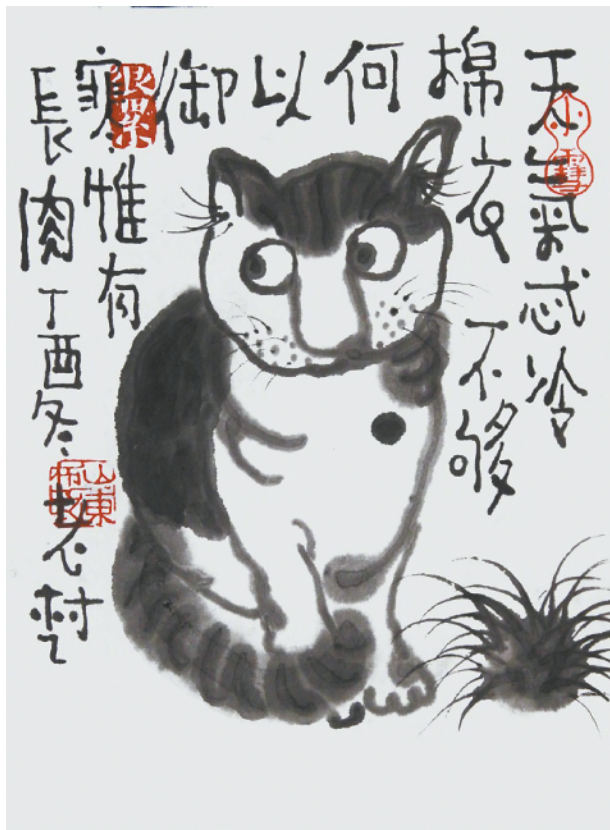 天氣忒冷
棉衣不够
何
以
御
寒惟有
長肉丁酉冬老
小雪
山東